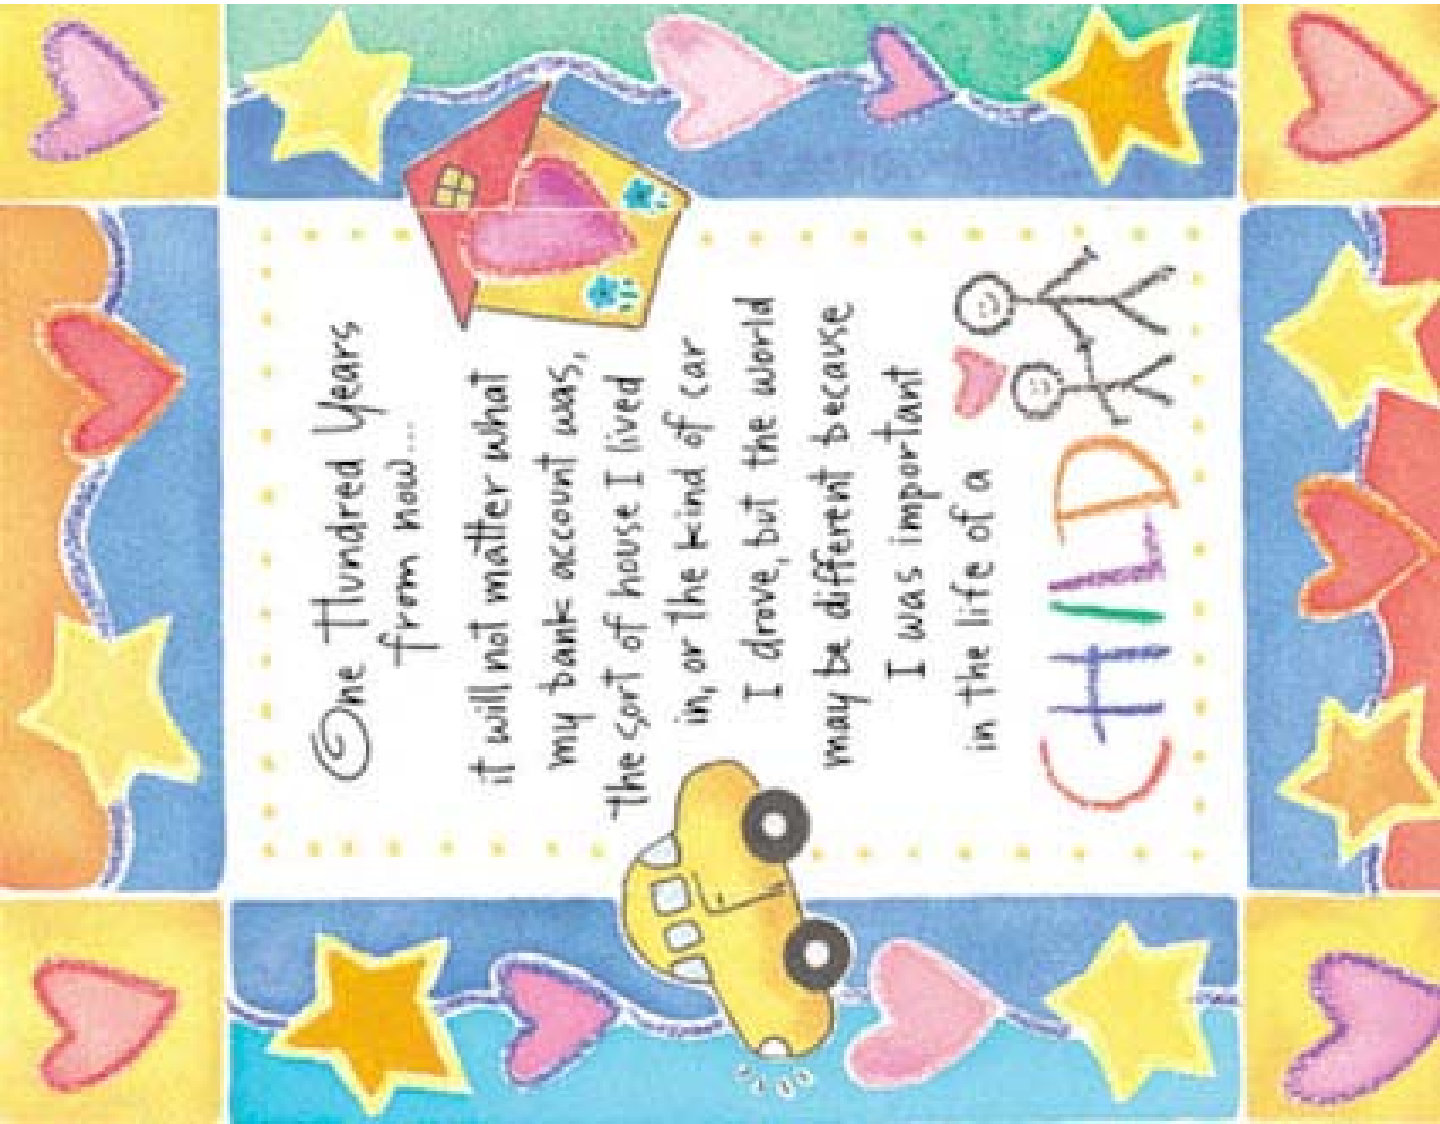 One Hundred Years
from now....
it will not matter what
my bank account was,
the sort of house I lived
in, or the kind of car
I drove, but the world
may be different because
I was important
in the life of a
CHILD